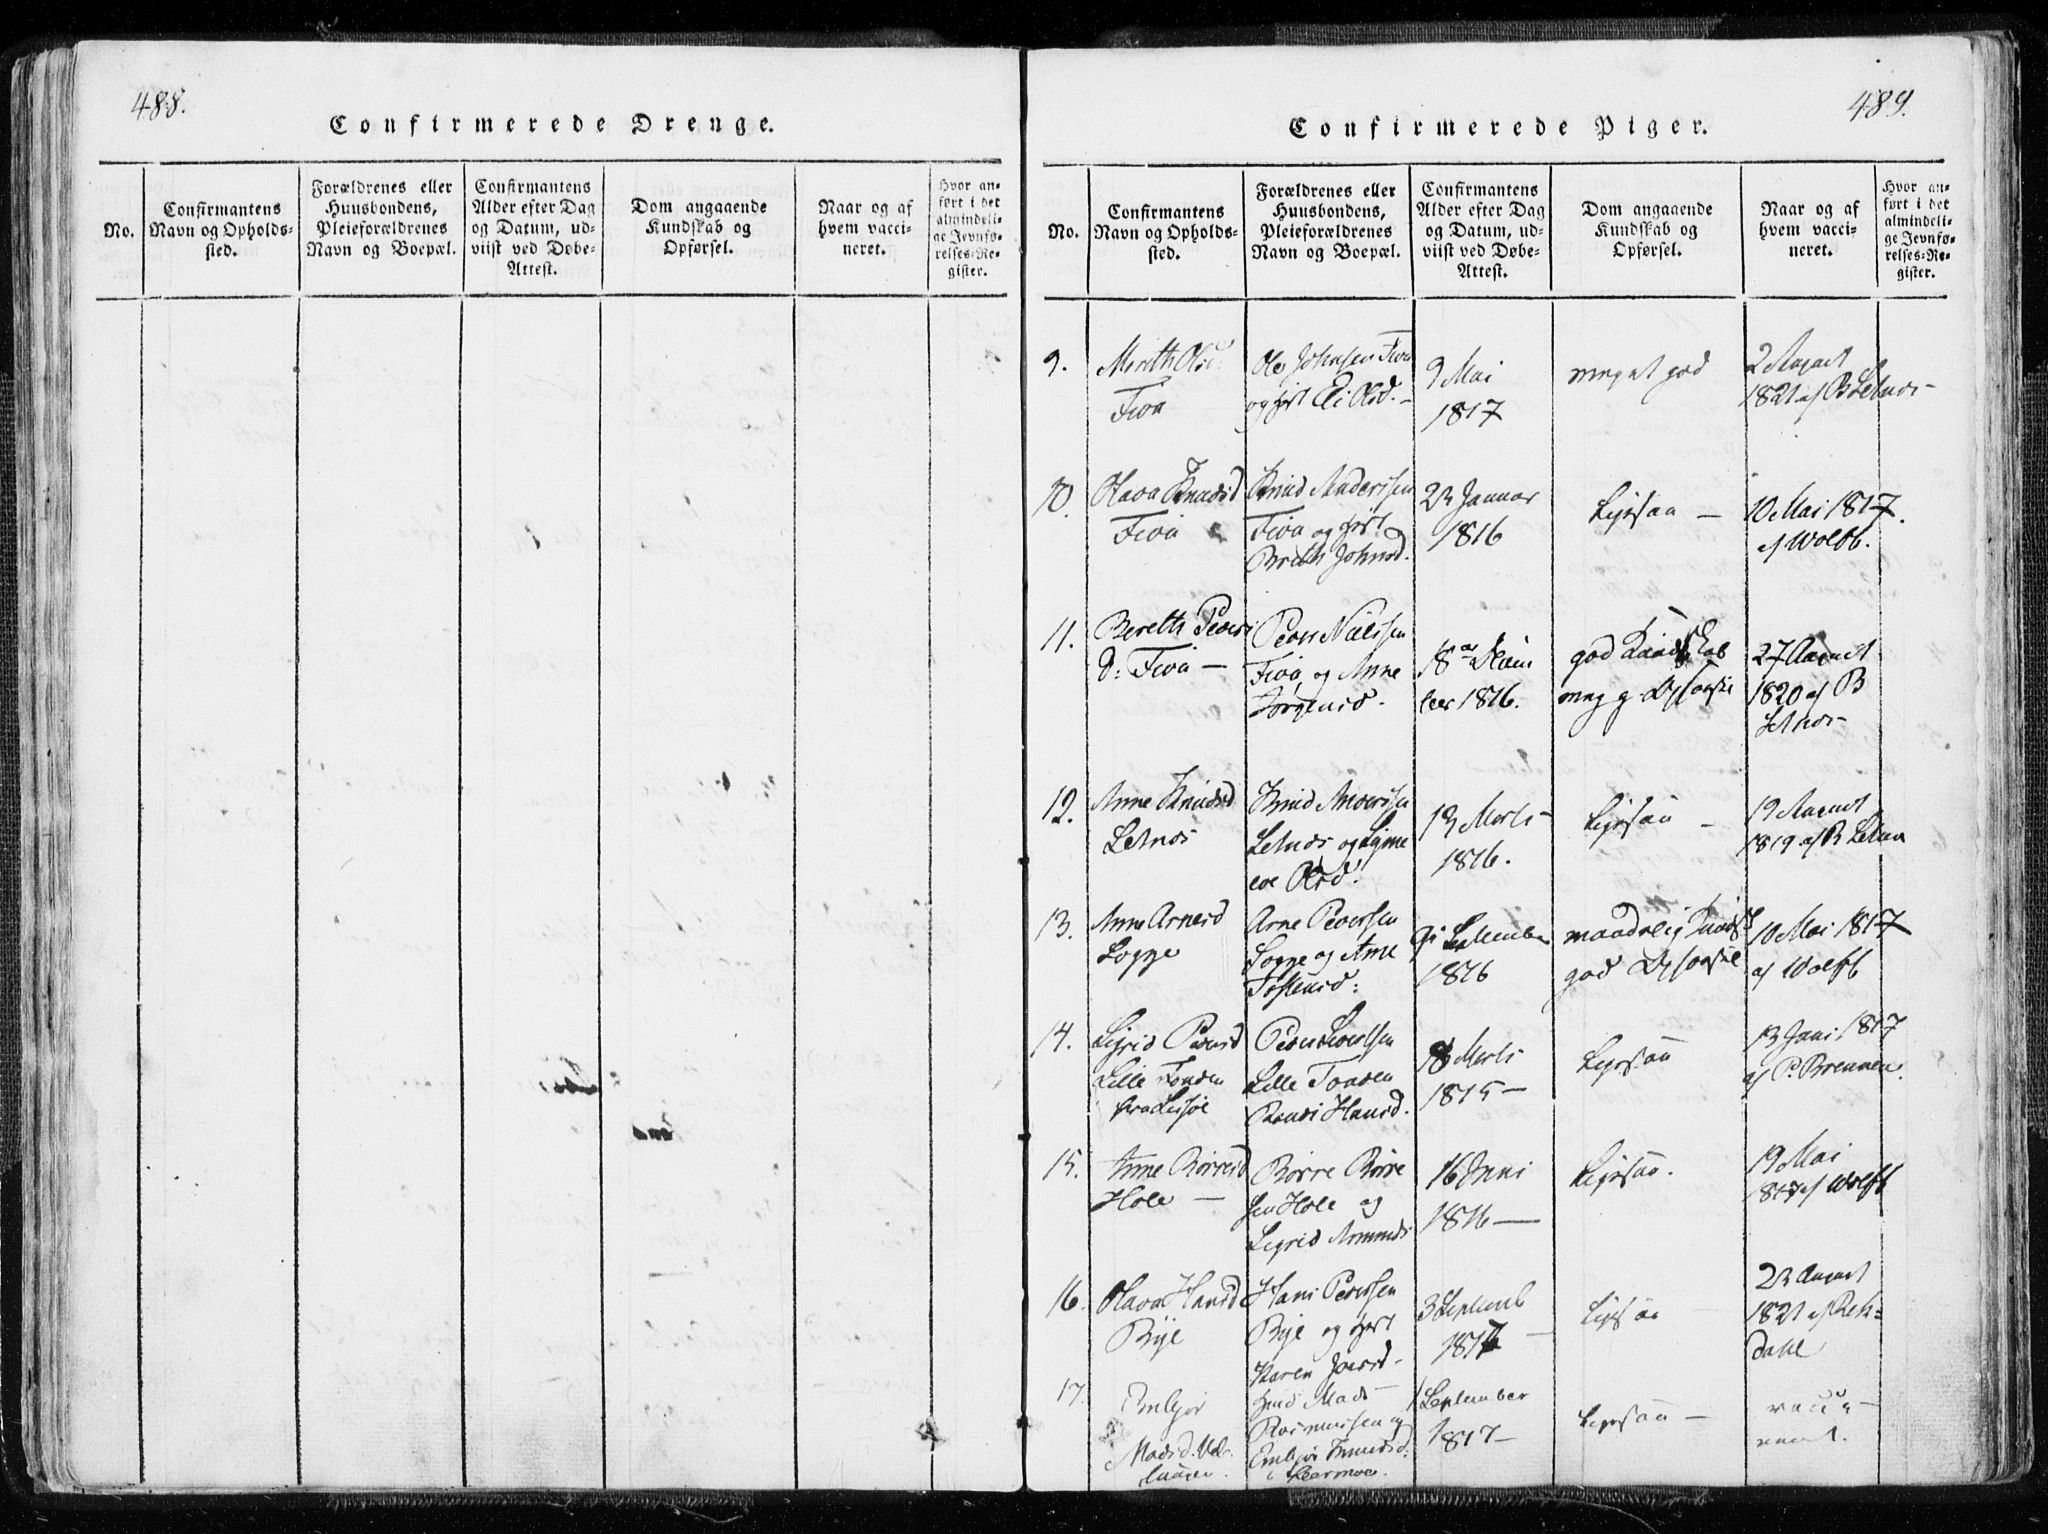 488.
Confirmerede Drenge.
No.
Confirmantens
Navn og Opholds-
sted.
Forældrenes eller
Huusbondens,
Pleieforældrenes
Navn og Boepæl.
Confirmantens
Alder efter Dag
og Datum, ud-
viist ved Døbe-
Attest.
Dom angaaende
Kundskab og
Opførsel.
Naar og af
hvem vacci-
neret.
Hvor an-
ført i det
almindeli-
ge Jevnfø-
relses-Re-
gister.
489.
Confirmerede Piger.
No.
Confirmantens
Navn og Opholds-
sted.
Forældrenes eller
Huusbondens,
Pleieforældrenes
Navn og Boepæl.
Confirmantens
Alder efter Dag
og Datum, ud-
viist ved Døbe-
Attest.
Dom angaaende
Kundskab og
Opførsel.
Naar og af
hvem vacci-
neret.
Hvor an-
ført i det
almindeli-
ge Jevnfø-
relses-Re-
gister.
9.
Mereth Olsd.
Fiva
Ole Johnsen Fiva
og
9 Mai
1817
meget god
2 August
1821 af B Letnes
10.
Olava Knudsd
Fiva
Knud Anderssen
Fiva og
Breth Johnsd.
23 Januar
1816
Ligesaa
10 Mai 1817
af Wolff.
11.
Bereth Peders
D: Fiva
Peder Nielssen
Fiva, og Anne
Jørgensd.
18
1816.
god Kundskab
meg g. Opførsel
27 August
1820 af B
Letnes
12.
Anne Knudsd
Letnes
Knud Anderssen
Letnes og Signe
Olsd.
13 Merts
1816.
Ligesaa
19 August
1819 af B Letnes
13.
Anne Arnesd
Sogge
Arne Pedersen
Sogge og Anne
Tostensd:
September
1816
maadelig Kundsk
god Opførsel
10 Mai 1817
af Wolff
14.
Sigrid Pedersd
Lille Fonden
fra Lesjøe
Peder Sivertsen
Lille Fonden
Hansd.
18 Merts
1815
Ligesaa
13 Juni 1817
af P. Brennen.
15.
Anne Børresd
Hole
Børre Børre
sen Hole og
Sigrid Amunds
16 Juni
1816
Ligesaa.
19 Mai
1817 af Wolff
16.
Olava Hansd
Bye
Hans Pedersen
Bye og
Karen Joensd
3 Septemb
1817
Ligesaa
23 August
1821 af Reh-
dahl
17.
Embjør
Madsd.
Mads
Rasmussen og
Embjør Knudsd:
1 September
1817
Ligesaa
vacci-
neret.